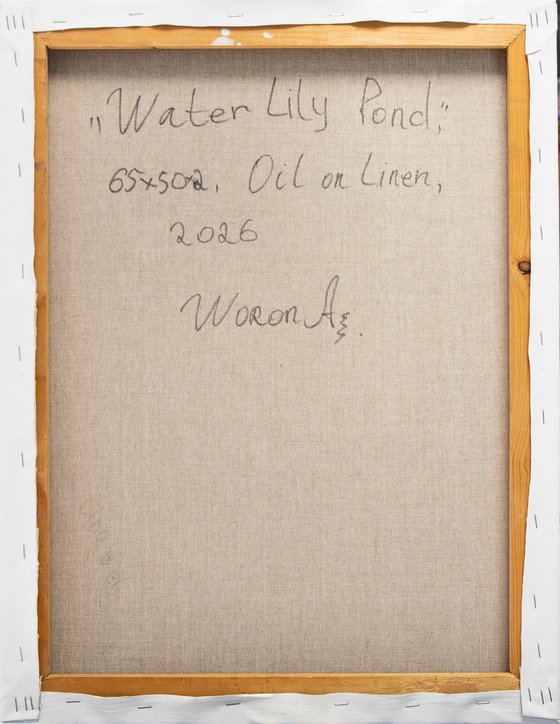 „Water Lily Pond,"
65x50x2. Oil on Linen,
2026
Woron A.